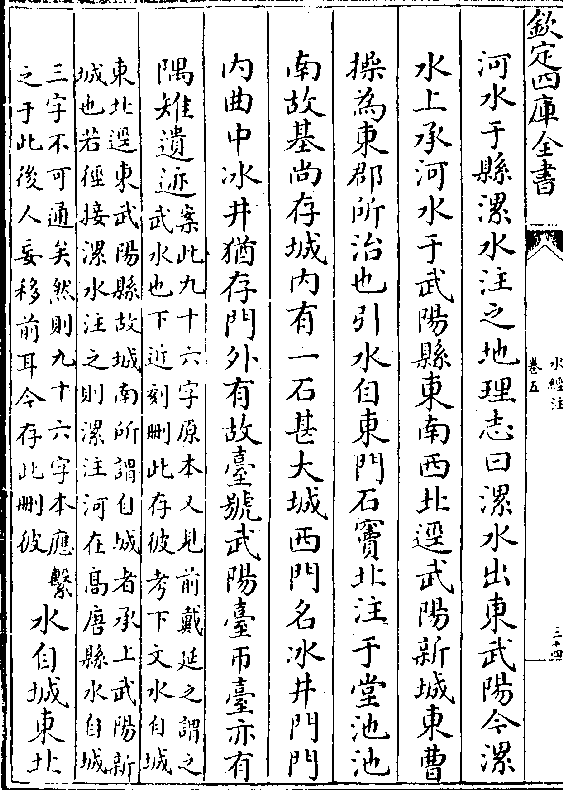 欽定四庫全書
水經注
卷五
三十四
河水于縣漯水注之地理志曰漯水出東武陽今漯
水上承河水于武陽縣東南西北逕武陽新城東曹
操為東郡所治也引水自東門石竇北注于堂池池
南故基尚存城内有一石甚大城西門名冰井門門
内曲中冰井猶存門外有故臺號武陽臺帀臺亦有
隅雉遺迹
案此九十六字原本又見前戴延之謂之
武水也下近刻刪此存彼考下文水自城
東北逕東武陽縣故城南所謂自城者承上武陽新
城也若徑接漯水注之則漯注河在高唐縣水自城
三字不可通矣然則九十六字本應繫
之于此後人妄移前耳今存此刪彼
水自城東北